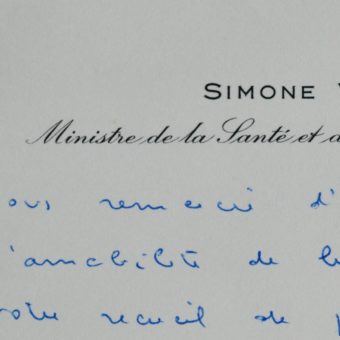 SIMONE V
Ministre de la Santé et d
ous remercie d'
'amabilité de
otre recueil de p